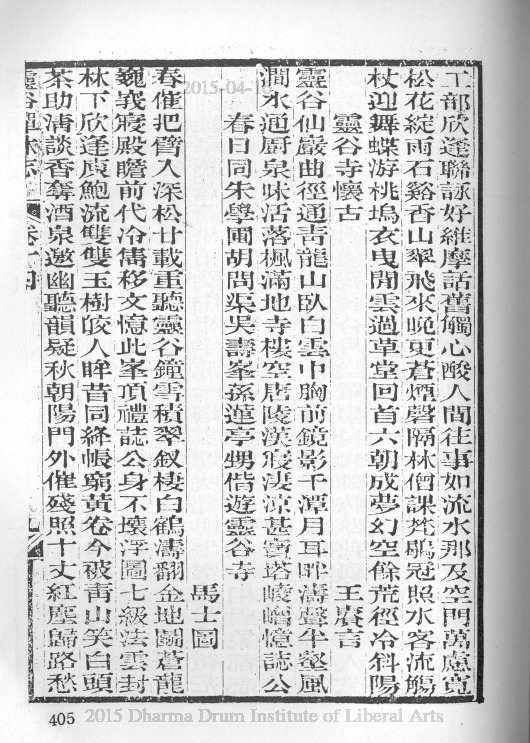 工部欣逢聯詠好維摩話舊觸心酸人間往事如流水那及空門萬慮寬
松花綻雨石谿香山翠飛來晚更蒼煙磬隔林僧課梵鶡冠照水客流觴
杖迎舞蝶游桃塢衣曳閒雲過草堂回首六朝成夢幻空餘荒徑冷斜陽
靈谷寺懷古 王賡言
靈谷仙巖曲徑通青龍山臥白雲中胸前鏡影千潭月耳畔濤聲半壑風
澗水通廚泉味活落楓滿地寺樓空唐陵漢寢淒涼甚寶塔崚嶒憶誌公
春日同朱學圃胡問渠吳壽峯孫蓮亭甥偕遊靈谷寺
馬士圖
春催把臂入深松廿載重聽靈谷鐘雪積翠釵棲白鶴濤翻金地鬭蒼龍
巍峩寢殿瞻前代冷雋移文憶此峯頂禮誌公身不壞浮圖七級法雲封
林下欣逢庾鮑流雙雙玉樹皎人眸昔同絳帳窮黃卷今被青山笑白頭
茶助清談香奪酒泉邀幽聽韻疑秋朝陽門外催殘照十丈紅塵歸路愁
靈谷禪林志 卷十四 九
405
2015-04-1
2015 Dharma Drum Institute of Liberal Arts